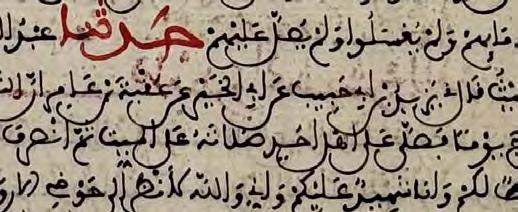 دمايهم ولم يغسلوا ولم يصل عليهم حدثنا عبد ا
ليث قال نا يزيد بن ابي حبيب عن ابي الخير عن عقبة بن عامر ان الن
خرج يوما فصلى على اهل احد صلاته على الميت ثم انصرف ا
فرط لكم وانا شهيد عليكم واني والله لانظر الى حوضي الان وا